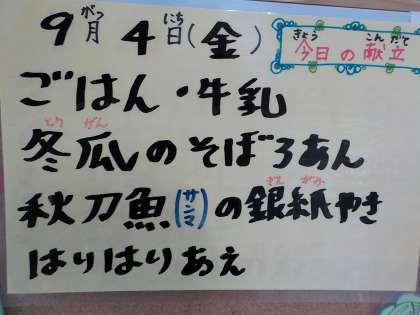 9月4日(金)
がつ にち
今日の献立
きょう こんだて
ごはん・牛乳
冬瓜のそぼろあん
とうがん
秋刀魚(サンマ)の銀紙やき
ぎんがみ
はりはりあえ